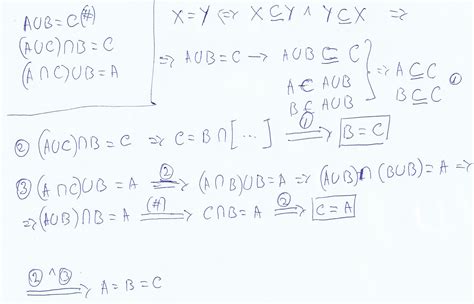 A∪B = C (#)
(A∪C)∩B = C
(A∩C)∪B = A
X = Y ⇔ X ⊆ Y ∧ Y ⊆ X ⇒
⇒ A∪B = C → A∪B ⊆ C
A ⊆ A∪B
B ⊆ A∪B
⇒ A ⊆ C
B ⊆ C ①
② (A∪C)∩B = C ⇒ C = B∩[...] ①⇒ B = C
③ (A∩C)∪B = A ②⇒ (A∩B)∪B = A ⇒ (A∪B)∩(B∪B) = A ⇒
⇒ (A∪B)∩B = A (#)⇒ C∩B = A ②⇒ C = A
②^③⇒ A = B = C